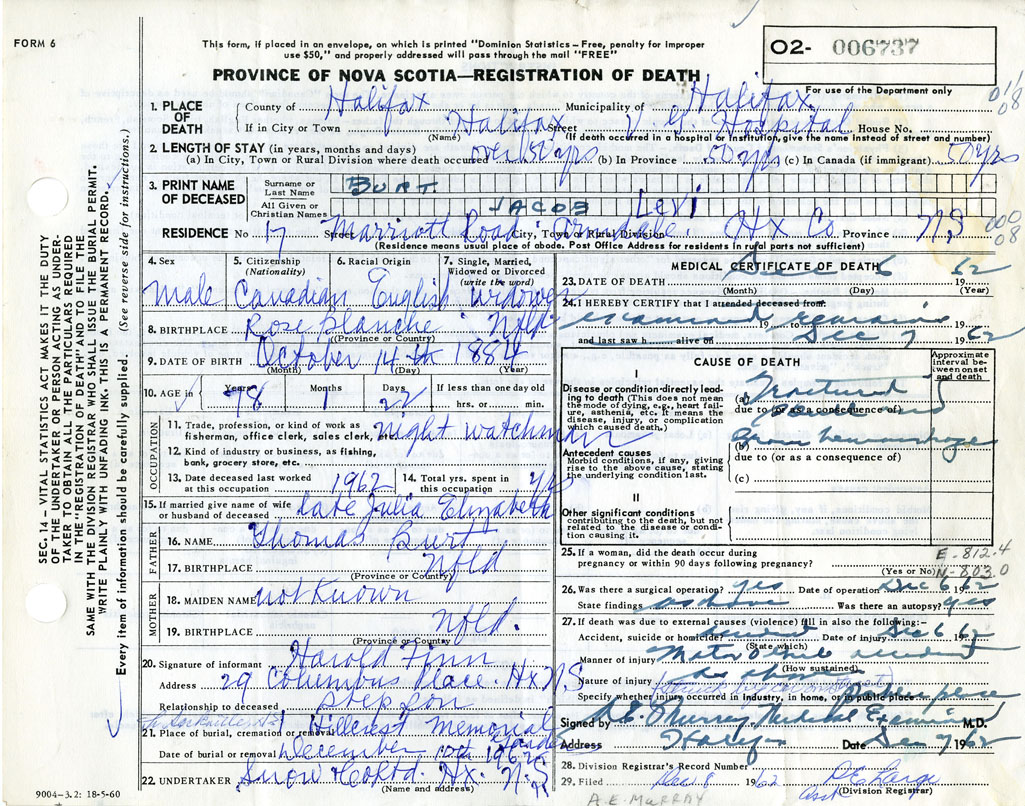 FORM 6
This form, if placed in an envelope, on which is printed "Dominion Statistics – Free, penalty for improper
use $50," and properly addressed will pass through the mail "FREE"
O2- 006737
For use of the Department only
PROVINCE OF NOVA SCOTIA—REGISTRATION OF DEATH
SEC. 14 – VITAL STATISTICS ACT MAKES IT THE DUTY
OF THE UNDERTAKER OR PERSON ACTING AS UNDER-
TAKER TO OBTAIN ALL THE PARTICULARS REQUIRED
IN THE "REGISTRATION OF DEATH" AND TO FILE THE
SAME WITH THE DIVISION REGISTRAR WHO SHALL ISSUE THE BURIAL PERMIT.
WRITE PLAINLY WITH UNFADING INK. THIS IS A PERMANENT RECORD.
Every item of information should be carefully supplied. (See reverse side for instructions.)
1. PLACE OF DEATH
County of Halifax Municipality of Halifax
If in City or Town Halifax Street V. G. Hospital House No.
(Name) (If death occurred in a hospital or institution, give the name instead of street and number)
2. LENGTH OF STAY (in years, months and days)
(a) In City, Town or Rural Division where death occurred over 50 yrs (b) In Province 50 yrs (c) In Canada (if immigrant) 50 yrs
3. PRINT NAME OF DECEASED
Surname or Last Name BURT
All Given or Christian Names JACOB Levi
RESIDENCE No 17 Street Marriott Road City, Town or Rural Division Hx Co Province N.S
(Residence means usual place of abode. Post Office Address for residents in rural parts not sufficient)
08
08
4. Sex 5. Citizenship (Nationality) 6. Racial Origin 7. Single, Married, Widowed or Divorced (write the word)
Male Canadian English widower
8. BIRTHPLACE Rose Blanche Nfld
(Province or Country)
9. DATE OF BIRTH October 14th 1884
(Month) (Day) (Year)
10. AGE in Years 78 Months 1 Days 22 If less than one day old hrs. or min.
OCCUPATION
11. Trade, profession, or kind of work as fisherman, office clerk, sales clerk, etc. night watchman
12. Kind of industry or business, as fishing, bank, grocery store, etc.
13. Date deceased last worked at this occupation 1962 14. Total yrs. spent in this occupation
15. If married give name of wife or husband of deceased late Julia Elizabeth
FATHER
16. NAME Thomas Burt
17. BIRTHPLACE Nfld
(Province or Country)
MOTHER
18. MAIDEN NAME not Known
19. BIRTHPLACE Nfld.
(Province or Country)
20. Signature of informant Harold Finn
Address 29 Columbus Place. Hx NS
Relationship to deceased Stepson
21. Place of burial, cremation or removal Hillcrest Memorial Gardens
Date of burial or removal December 10th 1962
22. UNDERTAKER Snow & Co Ltd. Hx. N.S
(Name and address)
9004-3.2: 18-5-60
MEDICAL CERTIFICATE OF DEATH
23. DATE OF DEATH Dec 6 62
(Month) (Day) (Year)
24. I HEREBY CERTIFY that I attended deceased from:
examined 19 to remains 19
and last saw h alive on Dec 7 1962
CAUSE OF DEATH
Approximate interval between onset and death
I
Disease or condition directly leading to death (This does not mean the mode of dying, e.g., heart failure, asthenia, etc. It means the disease, injury, or complication which caused death.)
(a) Fractured
due to (or as a consequence of)
Antecedent causes
Morbid conditions, if any, giving rise to the above cause, stating the underlying condition last.
(b) hemorrhage
due to (or as a consequence of)
(c)
II
Other significant conditions
contributing to the death, but not related to the disease or condition causing it.
25. If a woman, did the death occur during pregnancy or within 90 days following pregnancy?
(Yes or No)
E-812.4
N-803.0
26. Was there a surgical operation? yes Date of operation Dec 6 1962
State findings as above Was there an autopsy? yes
27. If death was due to external causes (violence) fill in also the following:–
Accident, suicide or homicide? accident Date of injury Dec 6 1962
(State which)
Manner of injury Motor vehicle accident
(How sustained)
Nature of injury as above
Specify whether injury occurred in industry, in home, or in public place place
Signed by A.E. Murray Medical Examiner M.D.
Address Halifax Date Dec 7 1962
28. Division Registrar's Record Number
29. Filed Dec 8 1962
Asst (Division Registrar)
A.E. MURRAY